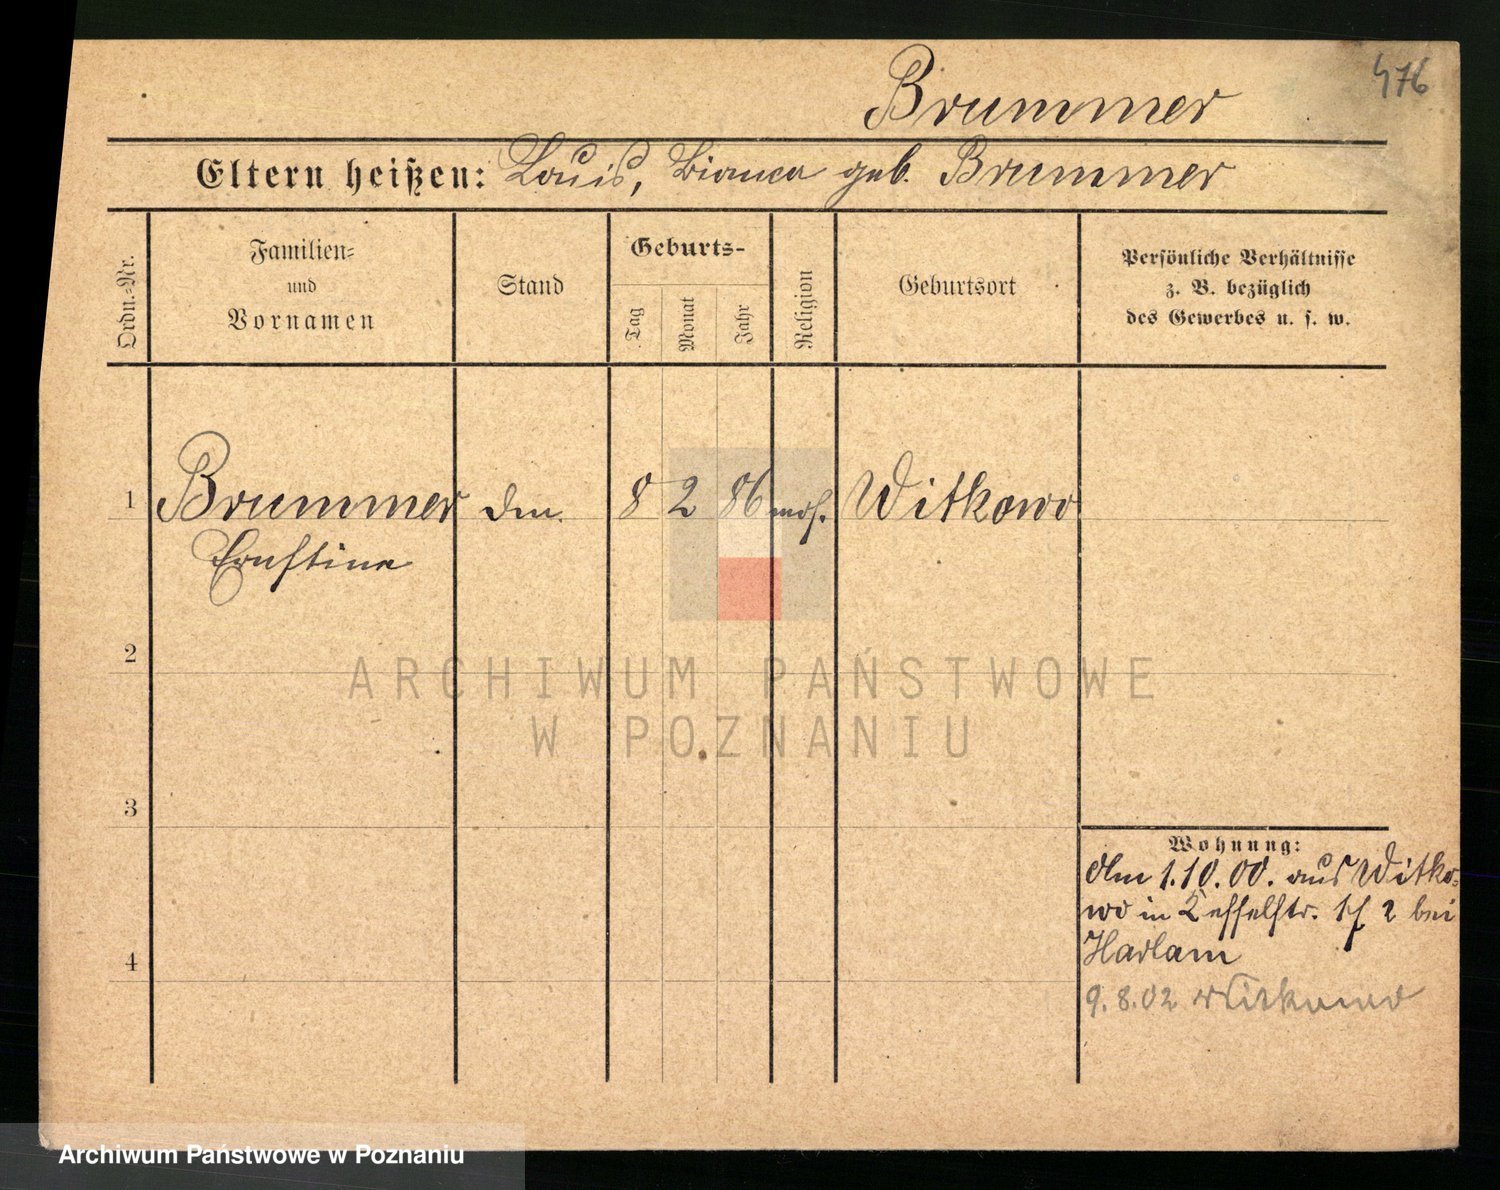 476
Brummer
Eltern heißen: Louis, Bianca geb. Brummer
Ordn.-Nr.
Familien-
und
Vornamen
Stand
Geburts-
Tag
Monat
Jahr
Religion
Geburtsort
Persönliche Verhältnisse
z. B. bezüglich
des Gewerbes u. s. w.
1 Brummer 8 2 86 mos. Witkowo
Ernstine
2
ARCHIWUM PAŃSTWOWE
W POZNANIU
3
Wohnung:
Am 1.10.00. aus Witko-
wo in 2 bei
4 Harlam
9.8.02 Witkowo
Archiwum Państwowe w Poznaniu